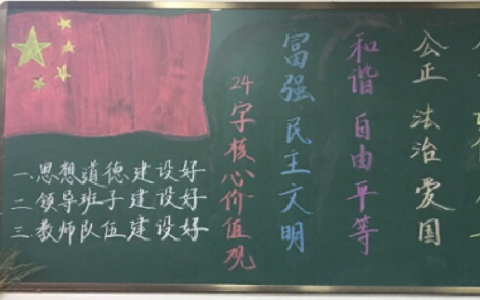 一.思想道德建设好
二.领导班子建设好
三.教师队伍建设好
24字核心价值观
富强民主文明
和谐自由平等
公正法治爱国